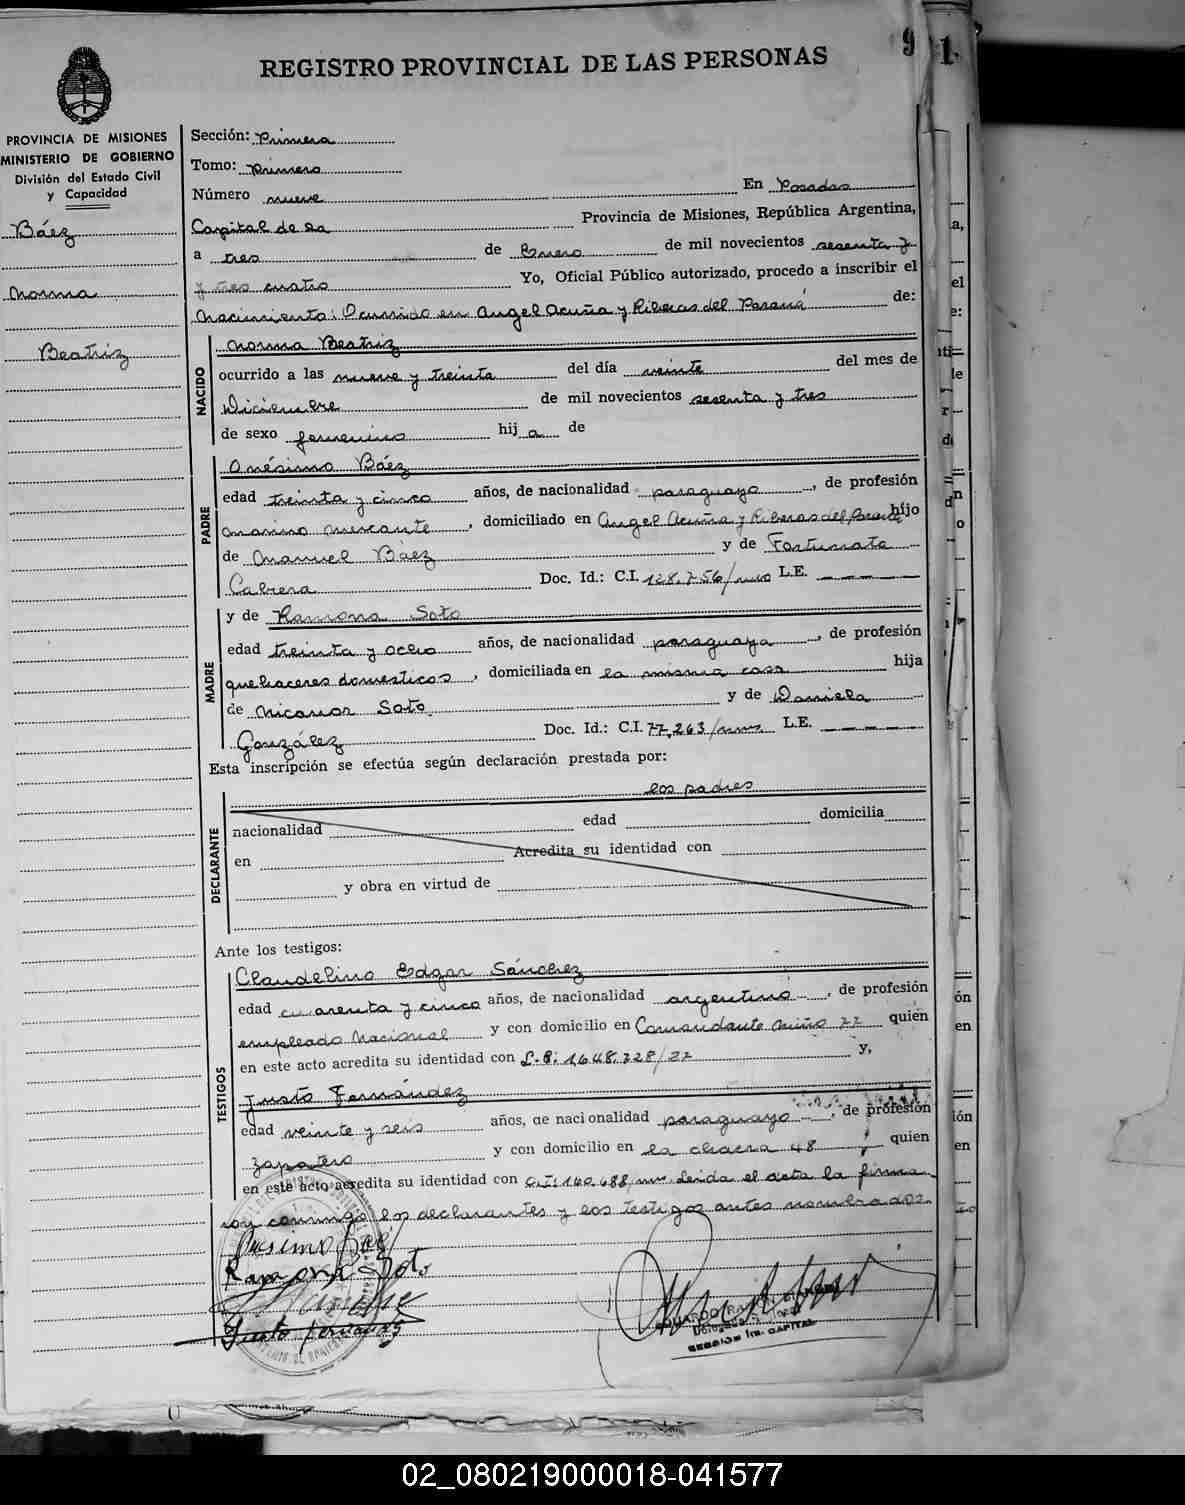 9 1
REGISTRO PROVINCIAL DE LAS PERSONAS
PROVINCIA DE MISIONES
MINISTERIO DE GOBIERNO
División del Estado Civil
y Capacidad
Báez
Norma
Beatriz
Sección: Primera
Tomo: Primero
Número nueve En Posadas
Capital de la Provincia de Misiones, República Argentina,
a tres de Enero de mil novecientos sesenta y
y tres cuatro Yo, Oficial Público autorizado, procedo a inscribir el
Nacimiento: Ocurrido en Angel Acuña y Riberas del Paraná de:
NACIDO
Norma Beatriz
ocurrido a las nueve y treinta del día veinte del mes de
Diciembre de mil novecientos sesenta y tres
de sexo femenino hij a de
PADRE
Onésimo Báez
edad treinta y cinco años, de nacionalidad paraguayo, de profesión
marino mercante, domiciliado en Angel Acuña y Riberas del Paraná hijo
de Manuel Báez y de Fortunata
Cabrera Doc. Id.: C.I. 128.756/mns L.E.
MADRE
y de Ramona Soto
edad treinta y ocho años, de nacionalidad paraguaya, de profesión
quehaceres domesticos, domiciliada en la misma casa hija
de Nicanor Soto y de Daniela
González Doc. Id.: C.I. 77.263/mns L.E.
Esta inscripción se efectúa según declaración prestada por:
los padres
DECLARANTE
nacionalidad edad domicilia
en Acredita su identidad con
y obra en virtud de
Ante los testigos:
TESTIGOS
Claudelino Edgar Sánchez
edad cuarenta y cinco años, de nacionalidad argentino, de profesión
empleado Nacional y con domicilio en Comandante Miño 77 quien
en este acto acredita su identidad con L.E: 1.648.728/27 y,
Justo Fernández
edad veinte y seis años, de nacionalidad paraguayo, de profesión
zapatero y con domicilio en la chacra 48 quien
en este acto acredita su identidad con C.I: 140.688/mns. Leida el acta la firma
ron conmigo los declarantes y los testigos antes nombrados.
Onesimo Baez
Ramona Soto
Justo Fernandez
SECCION 1ra. CAPITAL
02_080219000018-041577